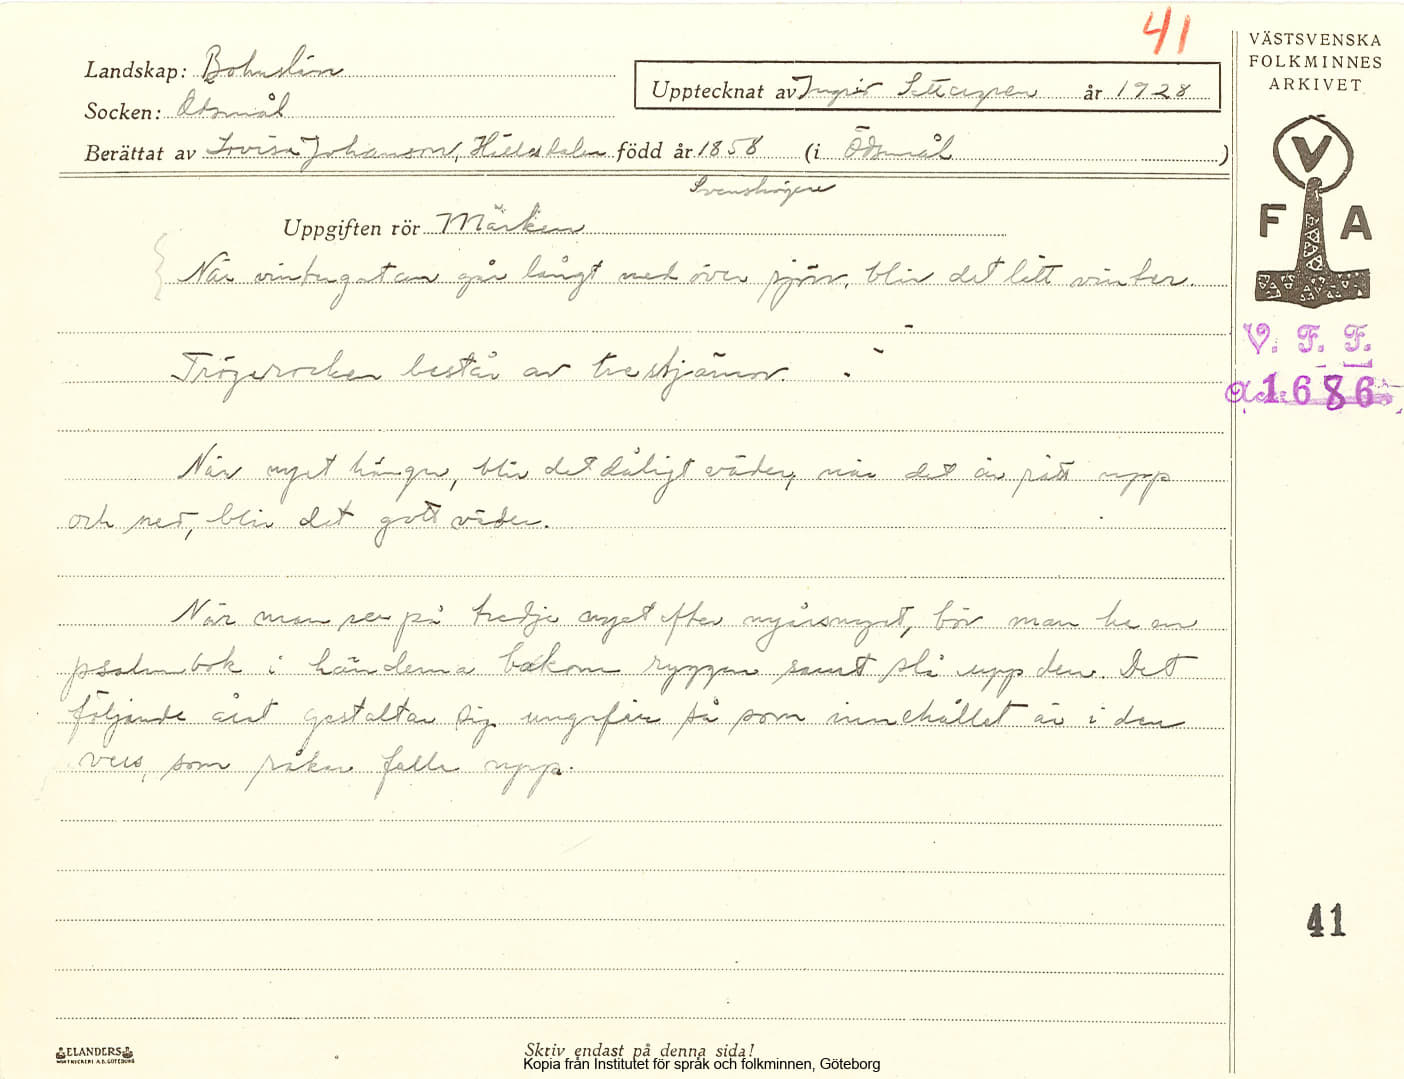 41
Landskap: Bohuslän
Socken: Ödsmål
Upptecknat av Ingrid år 1928
Berättat av Lovisa Johanson, född år 1858 (i Ödsmål)
Uppgiften rör Märken
När vintergatan går långt ned över sjön, blir det lätt vinter.
består av tre stjärnor.
När nyet hänger, blir det dåligt väder, när det är rätt upp
och ned, blir det gott väder.
När man ser på tredje nyet efter nyårsnyet, bör man ha en
psalmbok i händerna bakom ryggen samt slå upp den. Det
följande året gestaltar sig ungefär så som innehållet är i den
vers, som råkar falla upp.
VÄSTSVENSKA
FOLKMINNES
ARKIVET
V
F A
V. F. F.
1686
41
ELANDERS
Skriv endast på denna sida!
Kopia från Institutet för språk och folkminnen, Göteborg